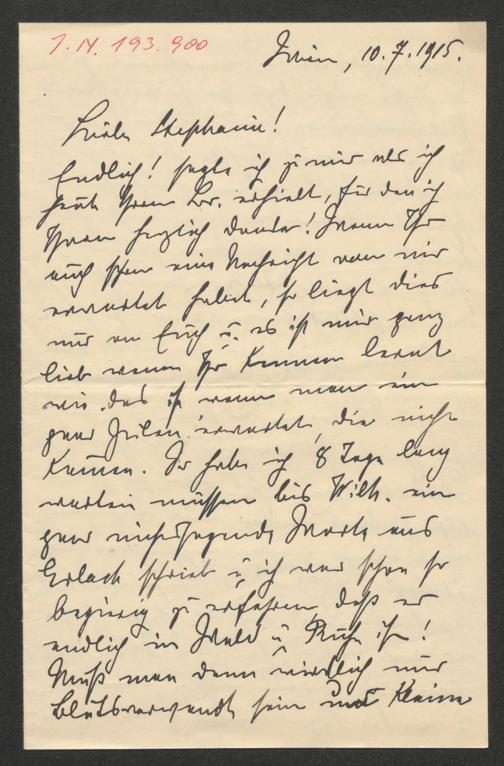 I.N. 193.900
Wien, 10.7.1915.
Liebe Stephanie!
Endlich! sagte ich zu mir als ich
heute Ihren Br. erhielt, für den ich
Ihnen herzlich danke! Wenn Ihr
auch schon eine Nachricht von mir
erwartet habet, so liegt dies
nur an Euch u. es ist mir ganz
lieb wenn Ihr kennen lernt
wie das ist wenn man ein
paar Zeilen erwartet, die nicht
kommen. So habe ich 8 Tage lang
warten müssen bis Wilh. ein
paar nichtssagende Worte aus
Erlach schrieb u. ich war schon so
begierig zu erfahren daß er
endlich in Wald u Ruh ist!
Muß man denn wirklich nur
blutsverwandt sein und kleine